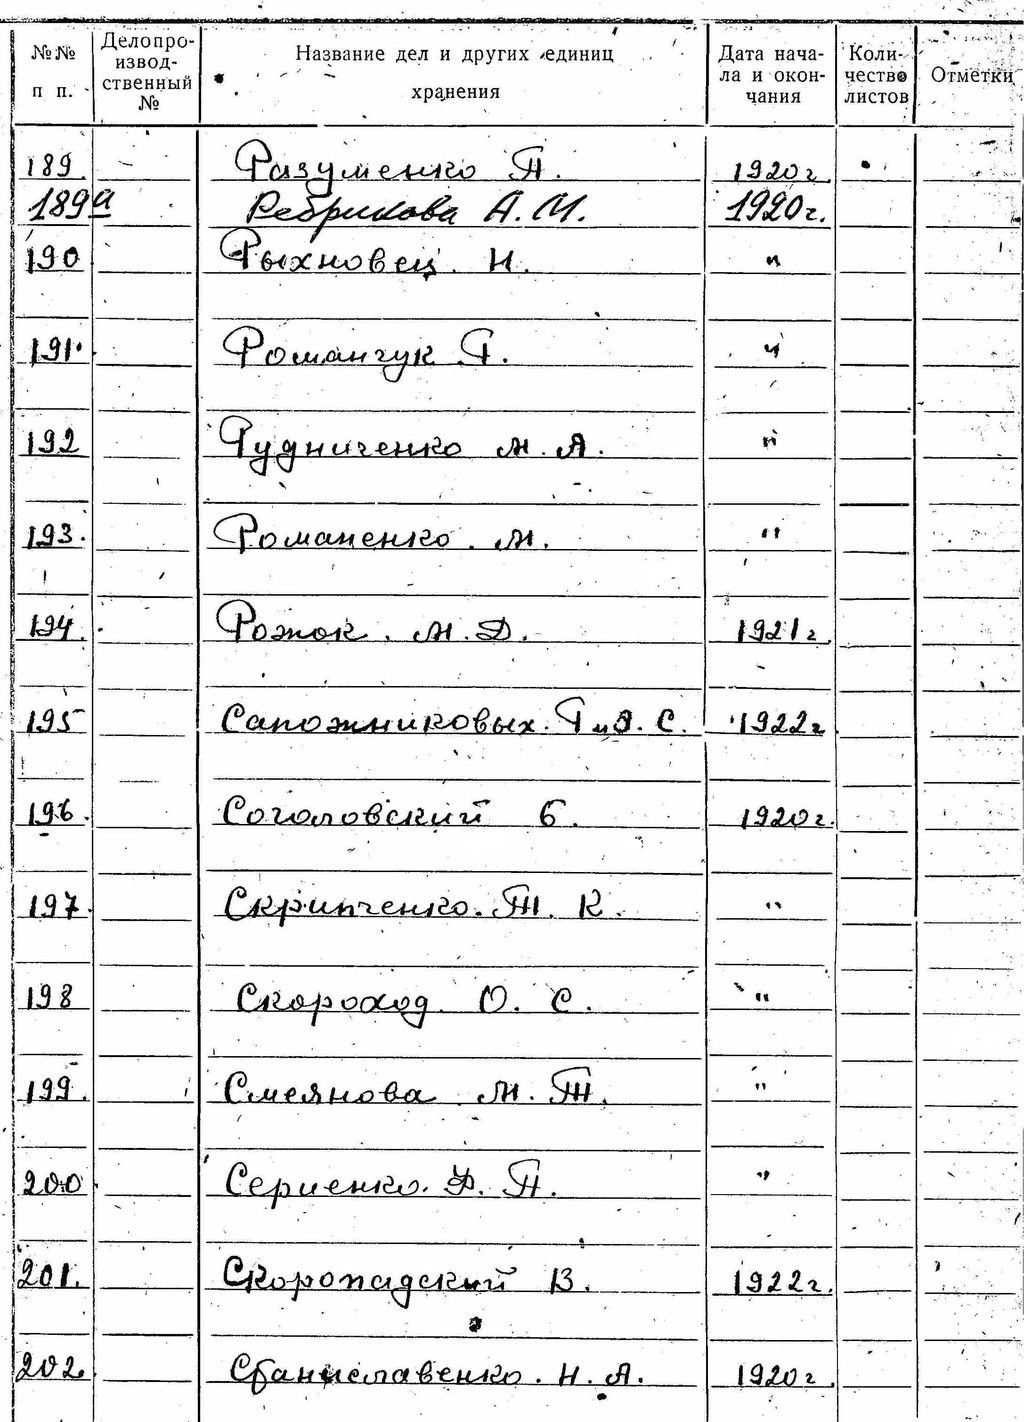 №№ п п. Делопроизводственный № Название дел и других единиц хранения Дата начала и окончания Количество листов Отметки
189. Разуменко П. 1920г.
189а Ребрикова А. М. 1920г.
190 Рыхновец Н. "
191. Романчук Г. "
192 Рудниченко М. А. "
193. Романенко М. "
194. Рожок М. Д. 1921г.
195 Сапожниковых Г и Э. С. 1922г.
196. Соголовский Б. 1920г.
197. Скрипченко Т. К. "
198 Скороход О. С. "
199. Смеянова М. Т. "
200 Сериенко Ф. П. "
201. Скоропадский В. 1922г.
202. Станиславенко Н. А. 1920г.